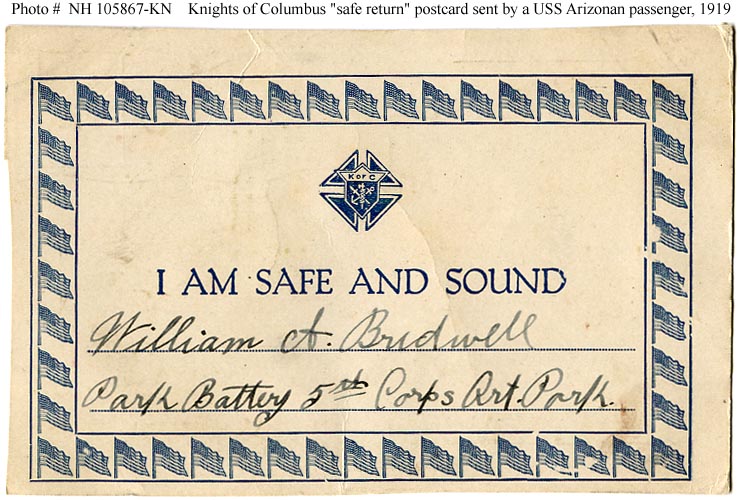 Photo # NH 105867-KN Knights of Columbus "safe return" postcard sent by a USS Arizonan passenger, 1919
K OF C
I AM SAFE AND SOUND
William A. Bridwell
Park Battery 5st Corps Art. Park.